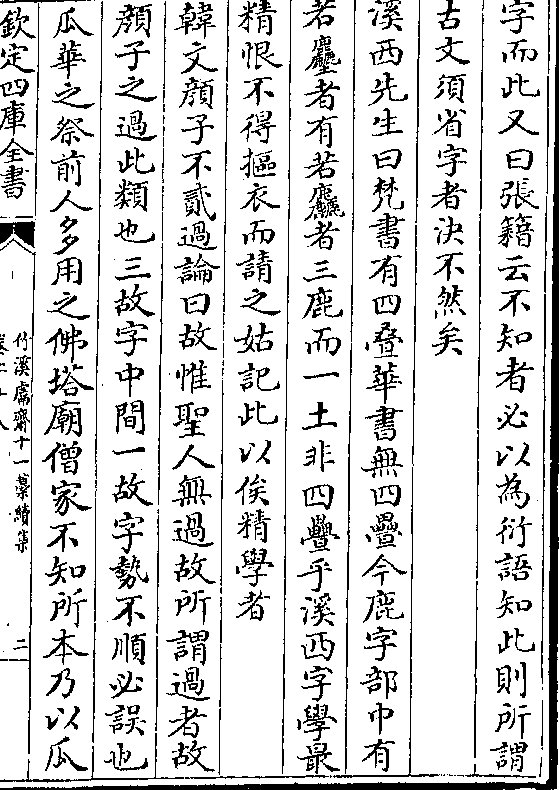 字而此又曰張籍云不知者必以為衍語知此則所謂
古文須省字者決不然矣
溪西先生曰梵書有四疊華書無四疊今鹿字部中有
若者有若者三鹿而一土非四疊乎溪西字學最
精恨不得摳衣而請之姑記此以俟精學者
韓文顔子不貳過論曰故惟聖人無過故所謂過者故
顔子之過此類也三故字中間一故字勢不順必誤也
瓜華之祭前人多用之佛塔廟僧家不知所本乃以瓜
欽定四庫全書
竹溪鬳齋十一藁續集
二